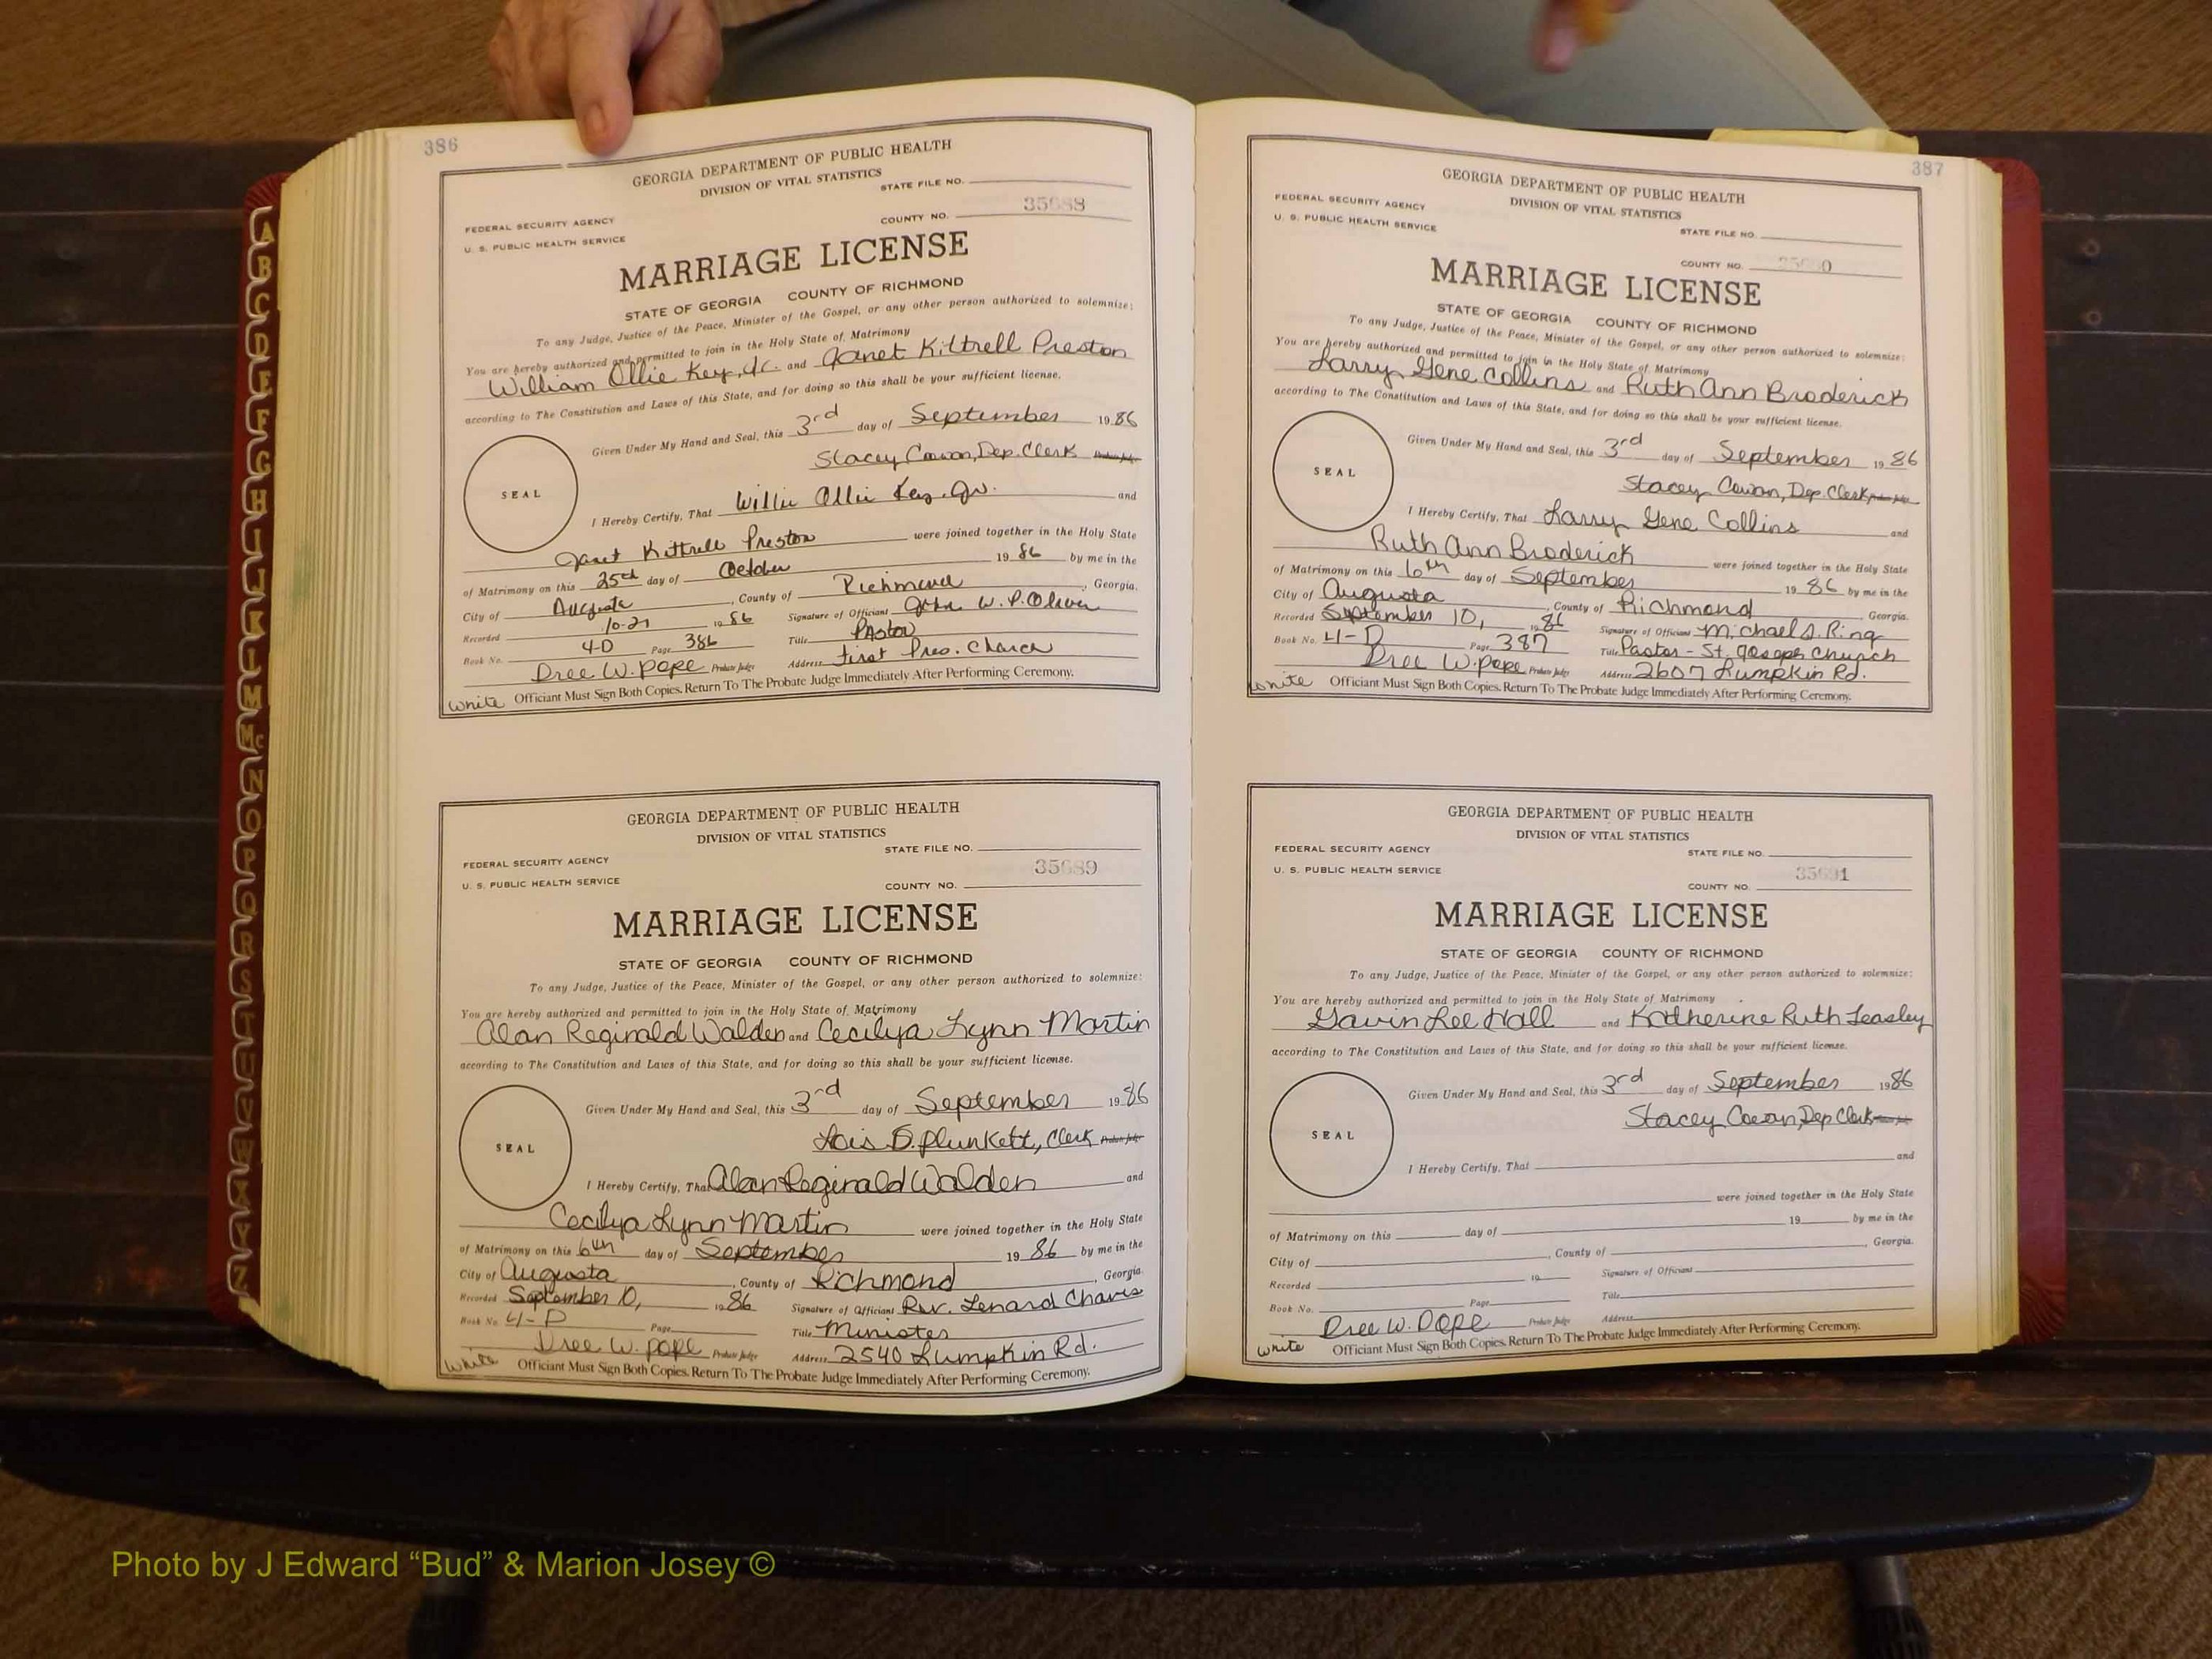 386
GEORGIA DEPARTMENT OF PUBLIC HEALTH
DIVISION OF VITAL STATISTICS
STATE FILE NO.
FEDERAL SECURITY AGENCY
COUNTY NO. 35688
U. S. PUBLIC HEALTH SERVICE
MARRIAGE LICENSE
STATE OF GEORGIA COUNTY OF RICHMOND
To any Judge, Justice of the Peace, Minister of the Gospel, or any other person authorized to solemnize:
You are hereby authorized and permitted to join in the Holy State of Matrimony
William Ollie Key, Jr. and Janet Kittrell Preston
according to The Constitution and Laws of this State, and for doing so this shall be your sufficient license.
Given Under My Hand and Seal, this 3rd day of September 1986
Stacey Cowan, Dep. Clerk Probate Judge
SEAL
I Hereby Certify, That Willie Ollie Key, Jr. and
Janet Kittrell Preston were joined together in the Holy State
of Matrimony on this 25th day of October 1986 by me in the
City of Augusta, County of Richmond, Georgia.
Recorded 10-27 1986 Signature of Officiant John W. P. Oliver
Book No. 4-D Page 386 Title Pastor
Dree W. Pope Probate Judge Address First Pres. Church
White Officiant Must Sign Both Copies. Return To The Probate Judge Immediately After Performing Ceremony.
GEORGIA DEPARTMENT OF PUBLIC HEALTH
DIVISION OF VITAL STATISTICS
STATE FILE NO.
FEDERAL SECURITY AGENCY
COUNTY NO. 35689
U. S. PUBLIC HEALTH SERVICE
MARRIAGE LICENSE
STATE OF GEORGIA COUNTY OF RICHMOND
To any Judge, Justice of the Peace, Minister of the Gospel, or any other person authorized to solemnize:
You are hereby authorized and permitted to join in the Holy State of Matrimony
Alan Reginald Walden and Cecilya Lynn Martin
according to The Constitution and Laws of this State, and for doing so this shall be your sufficient license.
Given Under My Hand and Seal, this 3rd day of September 1986
Lois B. Plunkett, Clerk Probate Judge
SEAL
I Hereby Certify, That Alan Reginald Walden and
Cecilya Lynn Martin were joined together in the Holy State
of Matrimony on this 6th day of September 1986 by me in the
City of Augusta, County of Richmond, Georgia.
Recorded September 10, 1986 Signature of Officiant Rev. Lenard Chavis
Book No. 4-D Page Title Minister
Dree W. Pope Probate Judge Address 2540 Lumpkin Rd.
White Officiant Must Sign Both Copies. Return To The Probate Judge Immediately After Performing Ceremony.
387
GEORGIA DEPARTMENT OF PUBLIC HEALTH
DIVISION OF VITAL STATISTICS
FEDERAL SECURITY AGENCY
U. S. PUBLIC HEALTH SERVICE
STATE FILE NO.
COUNTY NO. 35690
MARRIAGE LICENSE
STATE OF GEORGIA COUNTY OF RICHMOND
To any Judge, Justice of the Peace, Minister of the Gospel, or any other person authorized to solemnize:
You are hereby authorized and permitted to join in the Holy State of Matrimony
Larry Gene Collins and Ruth Ann Broderick
according to The Constitution and Laws of this State, and for doing so this shall be your sufficient license.
Given Under My Hand and Seal, this 3rd day of September 1986
Stacey Cowan, Dep. Clerk Probate Judge
SEAL
I Hereby Certify, That Larry Gene Collins and
Ruth Ann Broderick were joined together in the Holy State
of Matrimony on this 6th day of September 1986 by me in the
City of Augusta, County of Richmond Georgia.
Recorded September 10, 1986 Signature of Officiant Michael J. Ring
Book No. 4-D Page 387 Title Pastor - St. Joseph Church
Dree W. Pope Probate Judge Address 2607 Lumpkin Rd.
White Officiant Must Sign Both Copies. Return To The Probate Judge Immediately After Performing Ceremony.
GEORGIA DEPARTMENT OF PUBLIC HEALTH
DIVISION OF VITAL STATISTICS
FEDERAL SECURITY AGENCY
STATE FILE NO.
U. S. PUBLIC HEALTH SERVICE
COUNTY NO. 35691
MARRIAGE LICENSE
STATE OF GEORGIA COUNTY OF RICHMOND
To any Judge, Justice of the Peace, Minister of the Gospel, or any other person authorized to solemnize:
You are hereby authorized and permitted to join in the Holy State of Matrimony
Gavin Lee Hall and Katherine Ruth Teasley
according to The Constitution and Laws of this State, and for doing so this shall be your sufficient license.
Given Under My Hand and Seal, this 3rd day of September 1986
Stacey Cowan, Dep Clerk Probate Judge
SEAL
I Hereby Certify, That and
were joined together in the Holy State
of Matrimony on this day of 19 by me in the
City of , County of , Georgia.
Recorded 19 Signature of Officiant
Book No. Page Title
Dree W. Pope Probate Judge Address
White Officiant Must Sign Both Copies. Return To The Probate Judge Immediately After Performing Ceremony.
A
B
C
D
E
F
G
H
I
J
K
L
M
Mc
N
O
P
Q
R
S
T
U
V
W
X
Y
Z
Photo by J Edward “Bud” & Marion Josey ©